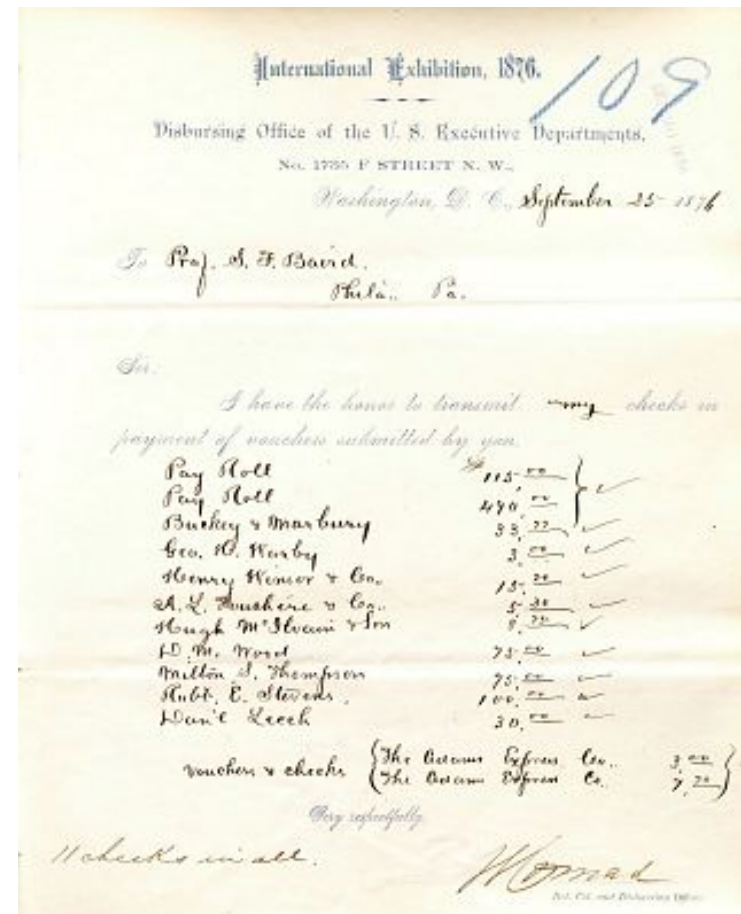 International Exhibition, 1876.
109
Disbursing Office of the U. S. Executive Departments,
No. 1735 F STREET N. W.,
Washington, D. C., September 25 1876
To Prof. S. F. Baird.
Phila. Pa.
Sir:
I have the honor to transmit my checks in
payment of vouchers submitted by you.
Pay Roll $115.00
Pay Roll 490.00
Buckey & Marbury 33.77
Geo. 3.00
Henry Winsor & Co. 15.20
A. L. & Co. 5.30
Hugh McIlvain & Son
D. M. Wood 75.00
Milton S. Thompson 75.00
Robt. E. Stevens, 100.00
Dan'l Leech 30.00
vouchers & checks {The Adams Express Co. 3.00
{The Adams Express Co. 7.70}
Very respectfully,
11 checks in all.
and Disbursing Officer